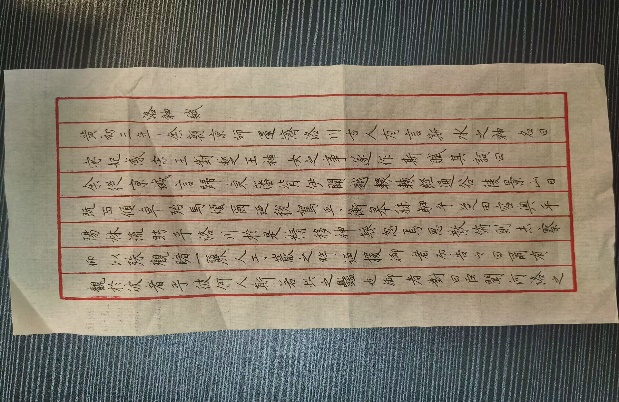 洛神賦
黄初三年余朝京師還濟洛川古人有言斯水之神名曰
宓妃感宋玉對楚王神女之事遂作斯賦其詞曰
余從京域言歸東藩背伊闕越轘轅經通谷陵景山日
既西傾車殆馬煩爾迺稅駕乎蘅皋秣駟乎芝田容與乎
陽林流眄乎洛川於是精移神駭忽焉思散俯則未察
仰以殊觀睹一麗人于巖之畔迺援御者而告之曰爾有
覿於彼者乎彼何人斯若此之豔也御者對曰臣聞河洛之